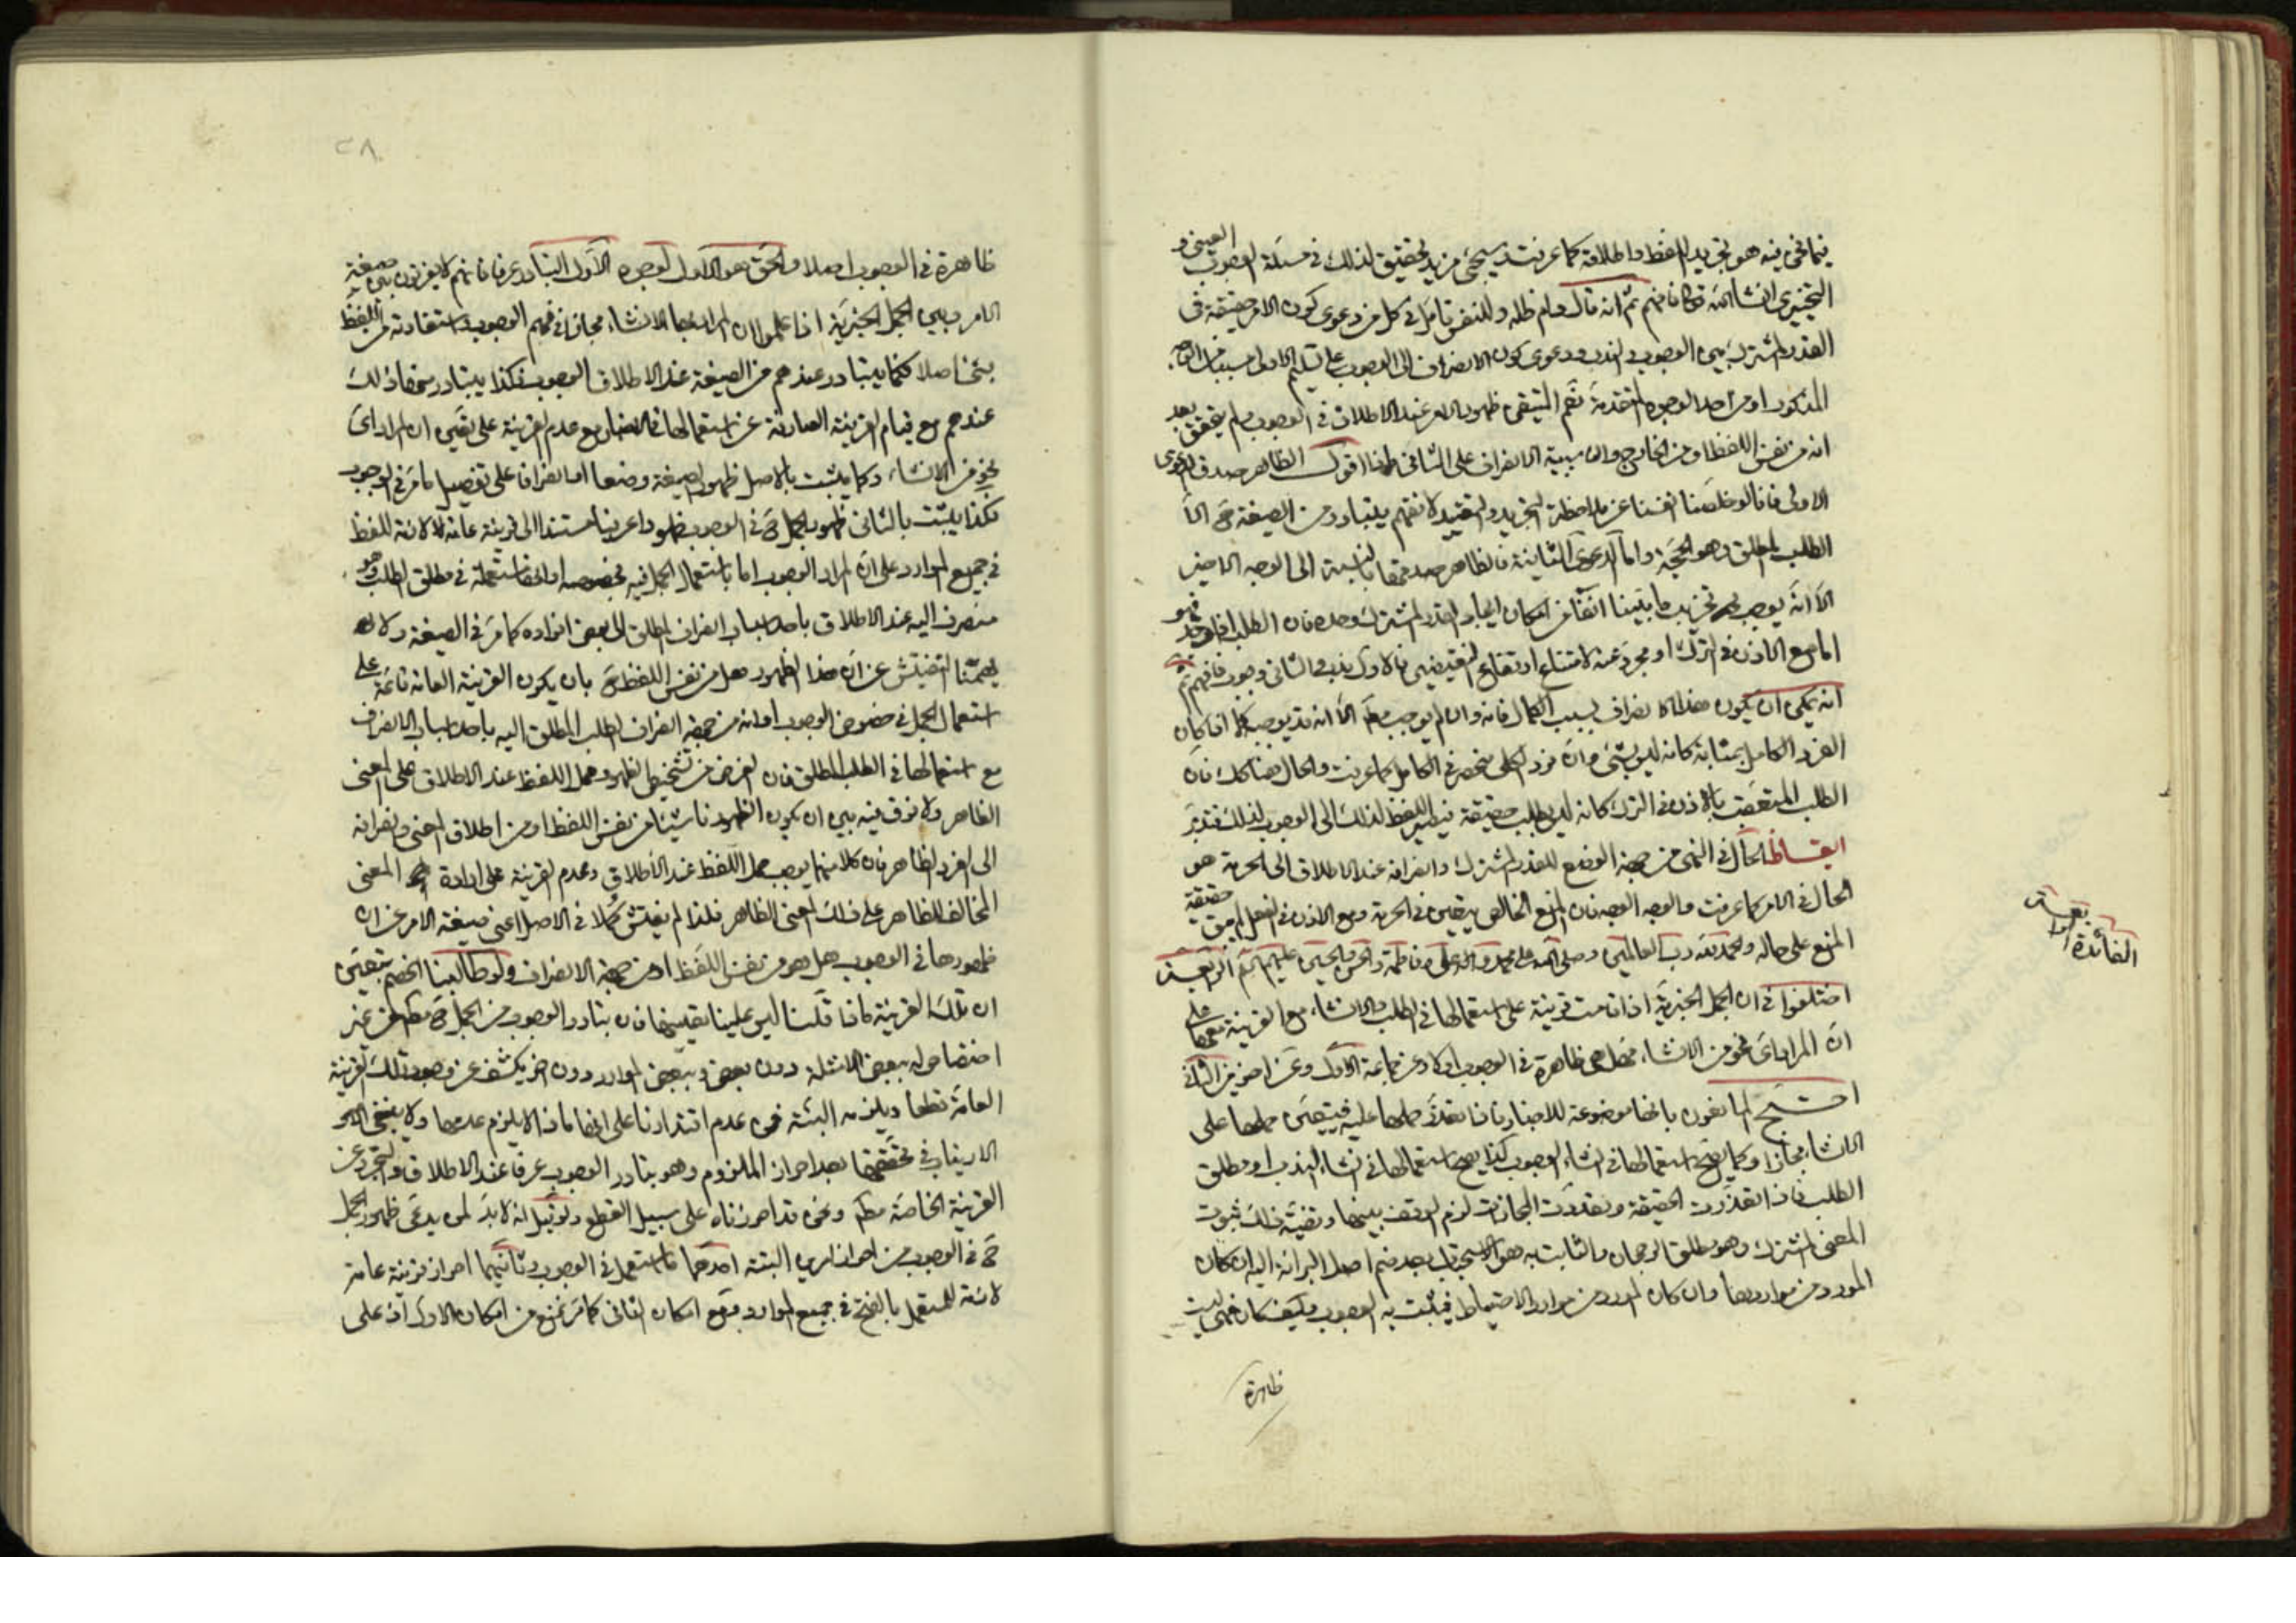 فيما نحن فيه هو تجريد اللفظ واطلاقه كما عرفت وسيجئ مزيد تحقيق لذلك في مسئلة الوجوب العيني و
التخييري انشاء الله تعالى فافهم ثم انه قال دام ظله وللنفس تامل في كل من دعوى كون الامر حقيقة في
القدر المشترك بين الوجوب والندب ودعوى كون الانصراف الى الوجوب على تسليم الاولى مسببا من الوجه
المذكور او من احد الوجوه المتقدمة نعم المتيقن ظهور الامر عند الاطلاق في الوجوب ولم يتحقق بعد
انه من نفس اللفظ او من الخارج وان سببية الانصراف على الثاني ماذا اقول الظاهر صدق الدعوى
الاولى فانا لو خلصنا انفسنا عن ملاحظة التجريد والتقييد لا نفهم يتبادر من الصيغة ح الا
الطلب المطلق وهو الحجة واما الدعوى الثانية فالظاهر صدقها بالنسبة الى الوجه الاخير
الا انه يوجب تخريب ما بينا انفا من امكان ايجاد القدر المشترك وحده فان الطلب اذا وجد فهو
اما مع الاذن في الترك او مجرد عنه لامتناع ارتفاع النقيضين فالاول ندب والثاني وجوب فافهم ثم
انه يمكن ان يكون هذا الانصراف بسبب الكمال فانه وان لم يوجب مط الا انه قد يوجب كما اذا كان
الفرد الكامل بمثابة كانه ليس بشئ وان فرد الكلي منحصر في الكامل كما عرفت والحال هنا كك فان
الطلب المتعقب بالاذن في الترك كانه ليس بطلب حقيقة فينصرف اللفظ لذلك الى الوجوب لذلك فتدبر
ايقاظ الحال في النهي من جهة الوضع للقدر المشترك وانصرافه عند الاطلاق الى الحرمة هو
الحال في الامر كما عرفت والوجه الوجه فان المنع الخالص يتعين في الحرمة ومع الاذن في الفعل لم يبق حقيقة
المنع على حاله والحمد لله رب العالمين وصلى الله على محمد وآله وعلى وفاطمة والحسن والحسين عليهم السلم
اختلفوا في ان الجمل الخبرية اذا قامت قرينة على استعمالها في الطلب والانشاء مع القرينة معها على
ان المراد اي نحو من الانشاء فهل هي ظاهرة في الوجوب او لا وعن جماعة الاول وعن اخرين الثاني
احتج المانعون بانها موضوعة للاخبار فاذا تعذر حملها عليه فيتعين حملها على
الانشاء مجازا وكما يصح استعمالها في انشاء الوجوب كذا يصح استعمالها في انشاء الندب او مطلق
الطلب فاذا تعذرت الحقيقة وتعددت المجازات لزم الوقف بينها وقضية ذلك ثبوت
المعنى المشترك وهو مطلق الرجحان والثابت به هو الاستحباب بعد ضم اصل البرائة اليه ان كان
المورد من مواردها وان كان المورد من موارد الاحتياط فيثبت به الوجوب وكيف كان فهي ليست
ظاهرة
الفائدة
٢٨
ظاهرة في الوجوب اصلا والحق هو الاول لوجوه الاول التبادر عرفا فانهم لا يفرقون بين صيغة
الامر وبين الجمل الخبرية اذا علموا ان المراد بها الانشاء مجازا في فهم الوجوب واستفادته من اللفظ
بشئ اصلا فكما يتبادر عندهم من الصيغة عند الاطلاق الوجوب فكذا يتبادر ذلك
عندهم مع قيام القرينة الصارفة عن استعمالها في الاخبار مع عدم القرينة على تعيين ان المراد اي
نحو من الانشاء وكما يثبت بالاصل ظهور الصيغة وضعا او انصرافا على تفصيل ما مر في الوجوب
فكذا يثبت بالثاني ظهور الجمل ح في الوجوب ظهورا عرفيا مستندا الى قرينة عامة لازمة للفظ
في جميع الموارد على ان المراد الوجوب اما باستعمال الجمل فيه بخصوصه او انها مستعملة في مطلق الطلب وهو
منصرف اليه عند الاطلاق باحد اسباب انصراف المطلق الى بعض افراده كما مر في الصيغة ولا
يهمنا التفتيش عن ان هذا الظهور هل من نفس اللفظ ح بان يكون القرينة العامة قائمة على
استعمال الجمل في خصوص الوجوب او انه من جهة انصراف الطلب المطلق اليه باحد اسباب الانصراف
مع استعمالها في الطلب المطلق فان الغرض من تشخيص الظهور حمل اللفظ عند الاطلاق على المعنى
الظاهر ولا فرق فيه بين ان يكون الظهور ناشئا من نفس اللفظ او من اطلاق المعنى وانصرافه
الى الفرد الظاهر فان كلا منهما يوجب حمل اللفظ عند الاطلاق وعدم القرينة على ارادة المعنى
المخالف للظاهر على ذلك المعنى الظاهر فلذا لم يفتش كملا في الاصل اعني صيغة الامر عن ان
ظهورها في الوجوب هل هو من نفس اللفظ او من جهة الانصراف ولو طالبنا الخصم بتعيين
ان تلك القرينة ماذا قلنا ليس علينا تعيينها فان تبادر الوجوب من الجمل ح مط من غير
اختصاص له ببعض الامثلة دون بعض وببعض الموارد دون اخر يكشف عن وجود تلك القرينة
العامة قطعا ويلزمه البتة فمن عدم اقتدارنا على انها ماذا لا يلزم عدمها ولا ينبغي
الارتياب في تحققها بعد احراز الملزوم وهو تبادر الوجوب عرفا عند الاطلاق والتجرد عن
القرينة الخاصة مط ونحن قد احرزناه على سبيل القطع ولو قيل انه لابد لمن يدعي ظهور الجمل
ح في الوجوب من احراز امرين البتة احدهما ما استعمل في الوجوب وثانيهما احراز قرينة عامة
لازمة للمستعمل بالفتح في جميع الموارد فمع امكان الثاني كما مر نمنع من امكان الاول اذ على